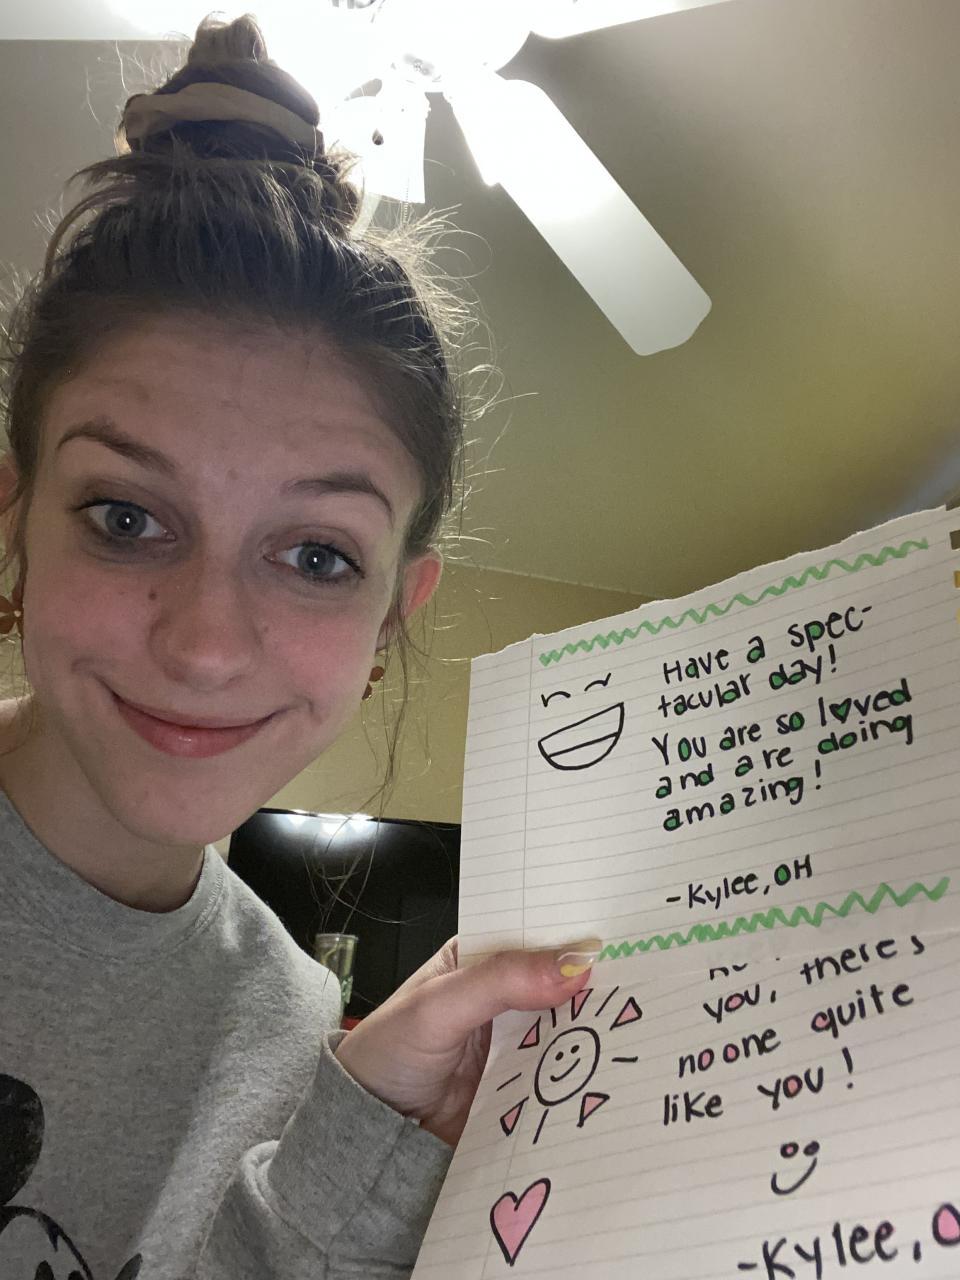 Have a spec-
tacular day!
You are so loved
and are doing
amazing!
-Kylee, OH
you, there's
no one quite
like you!
-Kylee, O